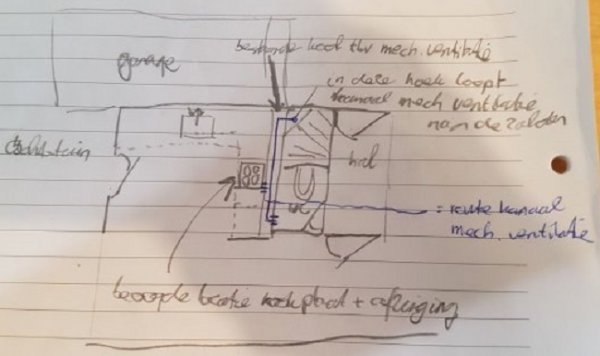 garage
koof tbv mech. ventilatie
in deze hoek loopt
kanaal mech ventilatie
naar de zolder
hal
WC
= route kanaal
mech. ventilatie
beoogde locatie kookplaat + afzuiging